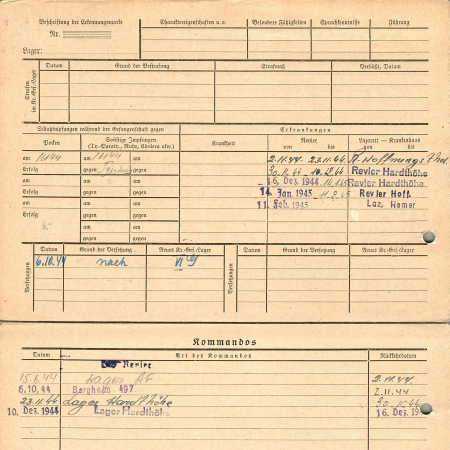 Beschriftung der Erkennungsmarke
Nr.
Lager:
Charaktereigenschaften u. a.
Besondere Fähigkeiten
Sprachkenntnisse
Führung
Strafen im Kr.-Gef.-Lager
Datum
Grund der Bestrafung
Strafmaß
Verbüßt, Datum
Schutzimpfungen während der Gefangenschaft gegen
Erkrankungen
Pocken
Sonstige Impfungen
(Ty.-Paraty., Ruhr, Cholera usw.)
Krankheit
Revier
von bis
Lazarett – Krankenhaus
von bis
am
am
gegen
Erfolg
am
gegen
am
gegen
Erfolg
am
gegen
am
gegen
Erfolg
am
gegen
2.11.44 23.11.44
30.11.44
Revier Hardthöhe
16. Dez. 1944
Revier Hardthöhe
14. Jan. 1945
Revier Hoff.
11. Feb. 1945
Laz. Hemer
Versetzungen
Datum
Grund der Versetzung
Neues Kr.-Gef.-Lager
Versetzungen
Datum
Grund der Versetzung
Neues Kr.-Gef.-Lager
6.10.44 nach VI G
Kommandos
Datum
Art des Kommandos
Rückkehrdatum
Revier
15.6.44
2.11.44
6.10.44 Bergheim 497 2.11.44
23.11.44 Lager Hardthöhe 30.11.44
10. Dez. 1944 Lager Hardthöhe 16. Dez. 19